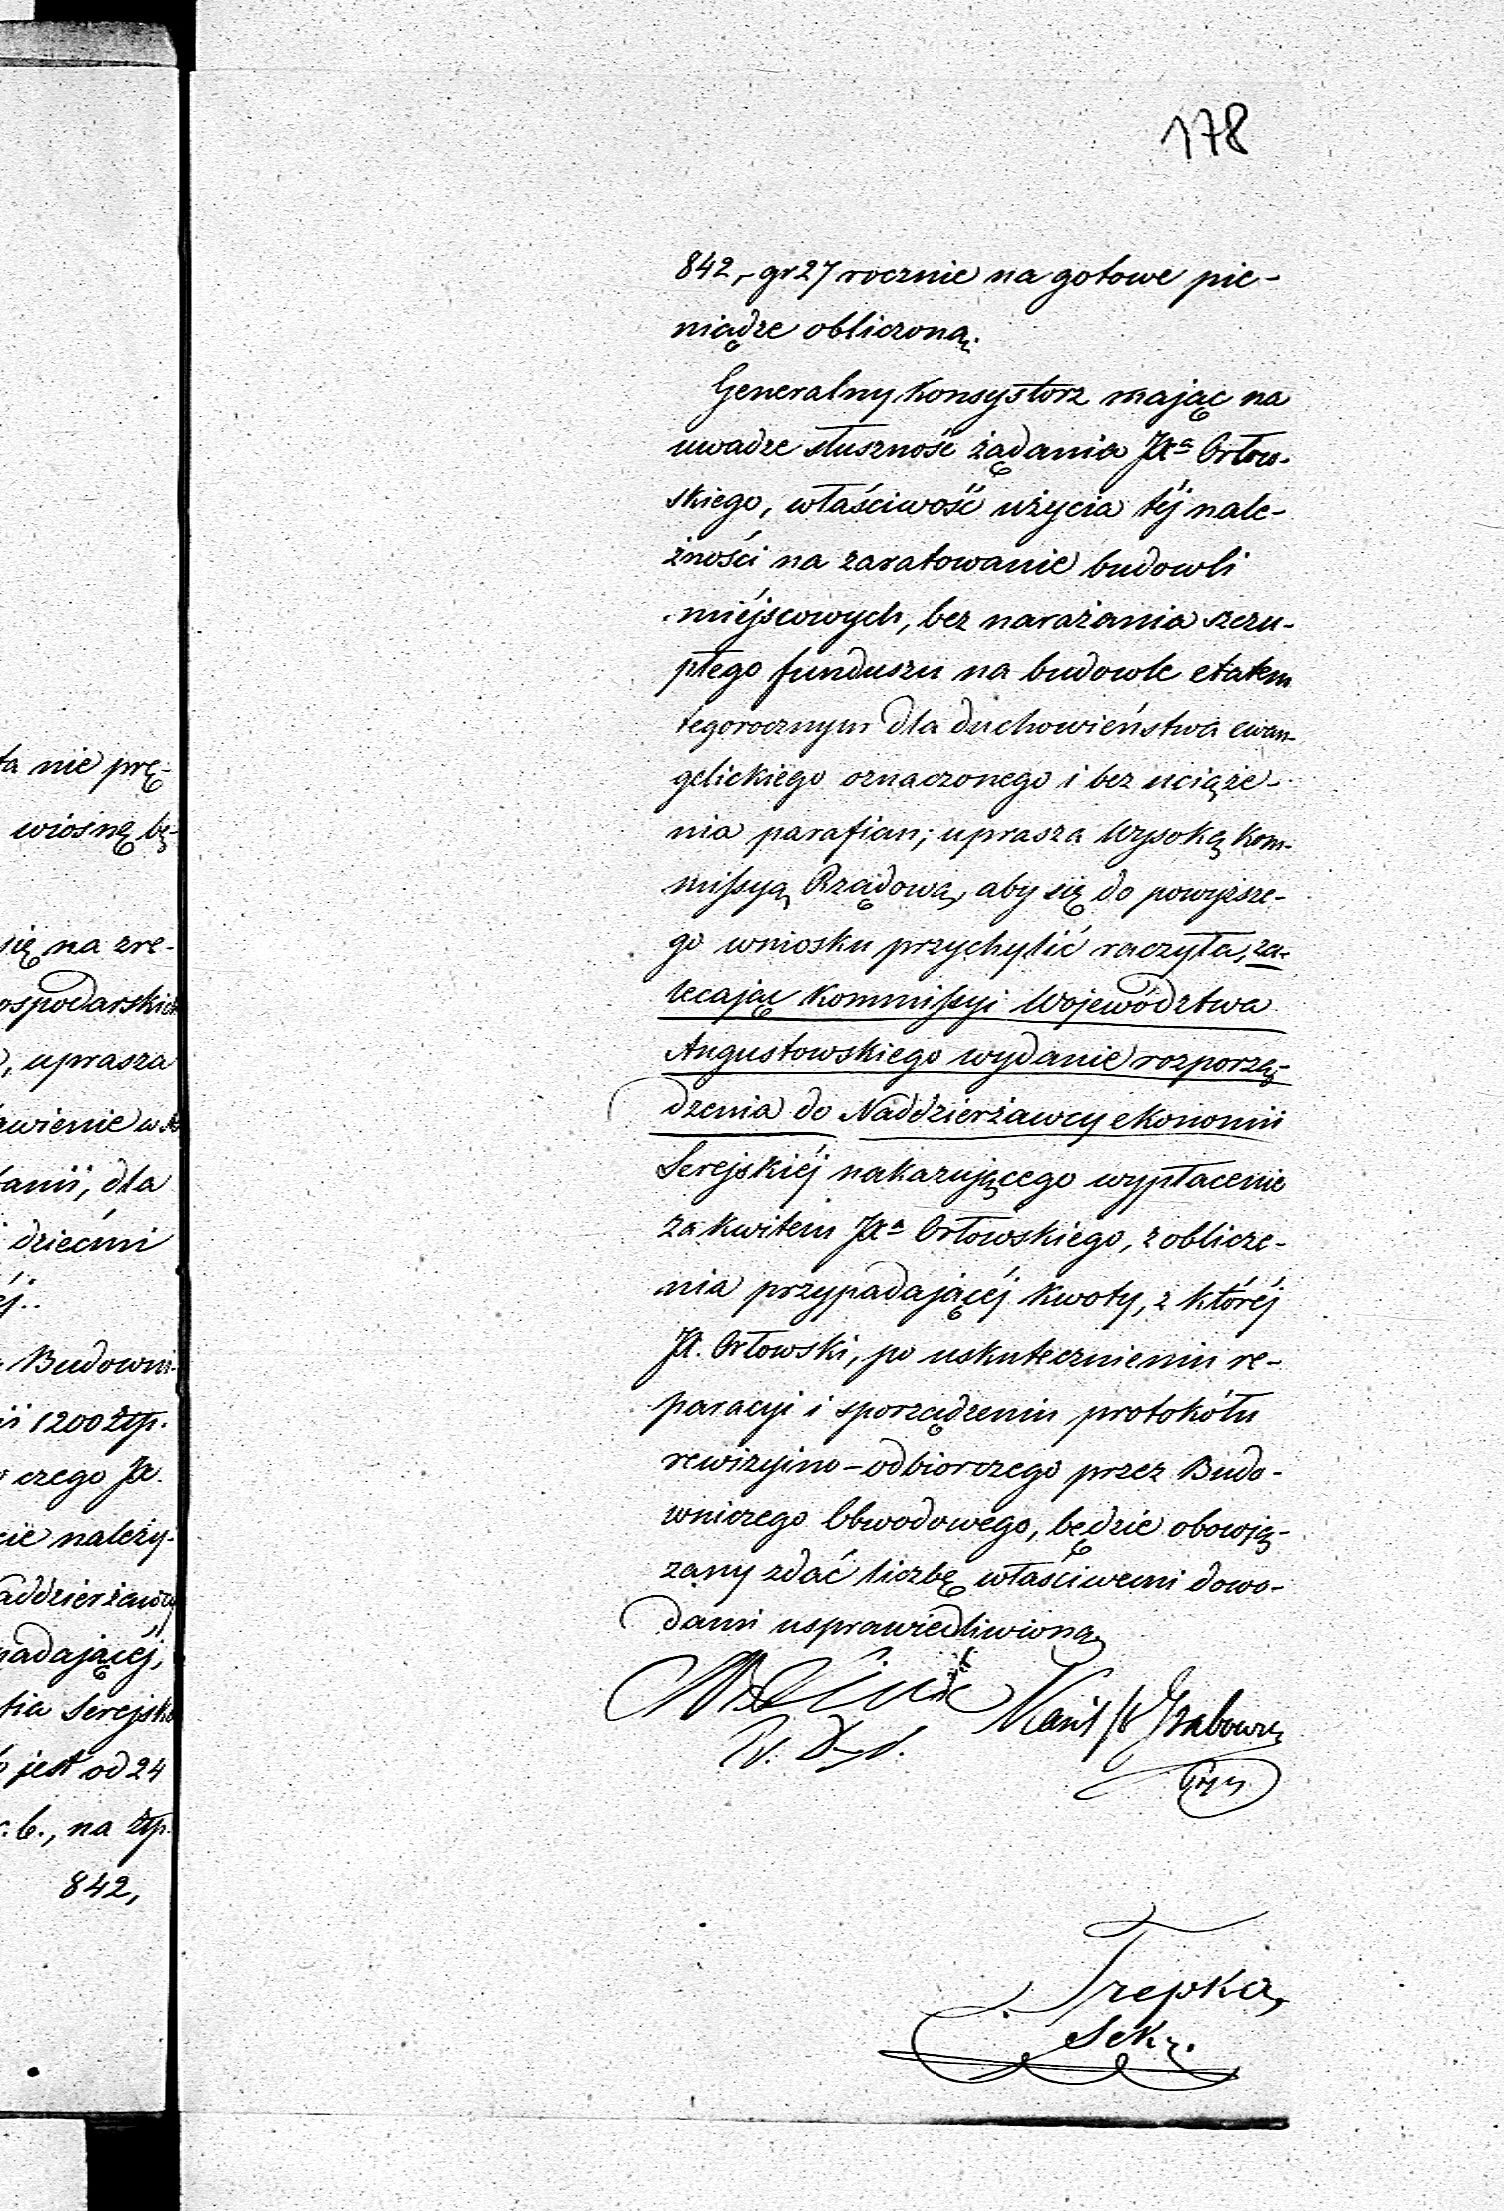 178
842,- gr 27 rocznie na gotowe pie-
niądze obliczoną.
Generalny Konsystorz mając na
uwadze słuszność żądania JXa Orłow-
skiego, właściwość użycia téj nale-
żności na zaratowanie budowli
miéjscowych, bez narażania szczu-
płego funduszu na budowle etatem
tegorocznym dla duchowieństwa ewan-
gelickiego oznaczonego i bez uciąże-
nia parafian; uprasza Wysoką Kom-
missyą Rządową, aby się do powyższe-
go wniosku przychylić raczyła, za-
lecając Kommissyi Województwa
Augustowskiego wydanie rozporzą-
dzenia do Naddzierżawcy ekonomii
Serejskiéj nakazującego wypłacenie
za kwitem JXa Orłowskiego, z oblicze-
nia przypadającéj kwoty, z któréj
JX. Orłowski, po uskutecznieniu re-
paracyi i sporządzeniu protokółu
rewizyjno-odbiorczego przez Budo-
wniczego Obwodowego, będzie obowią-
zany zdać liczbę właściwemi dowo-
dami usprawiedliwioną.
Trepka,
Sekr.
ta nie prę-
wiosnę bę-
się na zre-
ospodarskich
, uprasza
awienie w
anii, dla
dziećmi
éj..
Budowni-
ii 1200 złtp.
czego JX.
cie należy-
addzierżawcy
padającéj,
tia Serejsk
jest od 24
r. b., na złtp.
842,